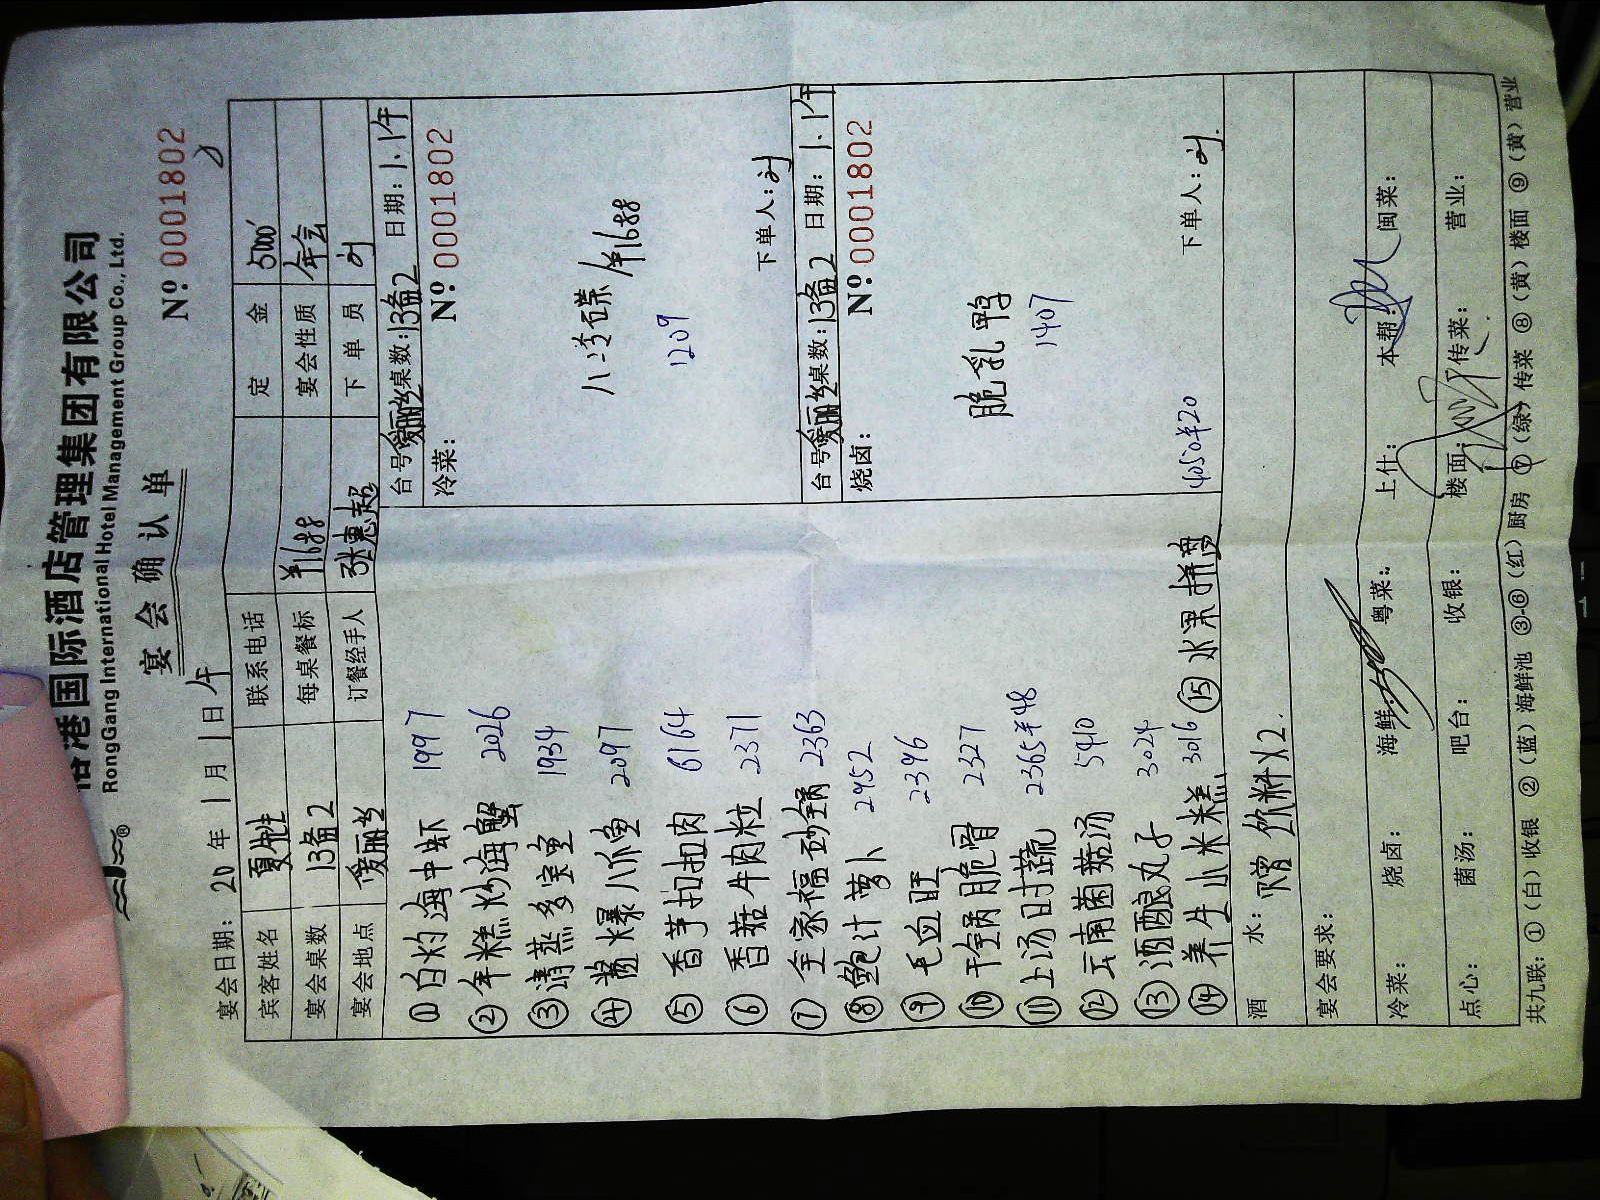 港国际酒店管理集团有限公司
RongGang International Hotel Management Group Co., Ltd.
宴会确认单
Nº 0001802
宴会日期: 20 年 1 月 1 日 午
宾客姓名 夏先生 联系电话 定金 5000
宴会桌数 13备2 每桌餐标 ¥1688 宴会性质 年会
宴会地点 爱丽丝 订餐经手人 张惠超 下单员 刘
① 白灼海中虾 1997
② 年糕炒海蟹 2026
③ 清蒸多宝鱼 1934
④ 酱爆八爪鱼 2097
⑤ 香芋扣扣肉 6164
⑥ 香菇牛肉粒 2371
⑦ 全家福砂锅 2363
⑧ 鲍汁萝卜 2952
⑨ 毛血旺 2396
⑩ 干锅脆骨 2327
⑪ 上汤时蔬 2365 ¥48
⑫ 云南菌菇汤 5910
⑬ 酒酿丸子 3024
⑭ 养生小米糕 3016 ⑮ 水果拼盘 4050 ¥20
台号 爱丽丝 桌数: 13备2 日期: 1.1午
冷菜: Nº 0001802
八冷碟 ¥1688
1209
下单人: 刘
台号 爱丽丝 桌数: 13备2 日期: 1.1午
烧卤: Nº 0001802
脆乳鸭
1407
下单人: 刘.
酒水: 赠饮料X2.
宴会要求:
冷菜: 烧卤: 海鲜: 粤菜: 上什: 本帮: 闽菜:
点心: 菌汤: 吧台: 收银: 楼面: 传菜: 营业:
共九联: ①(白)收银 ②(蓝)海鲜池 ③-⑥(红)厨房 ⑦(绿)传菜 ⑧(黄)楼面 ⑨(黄)营业